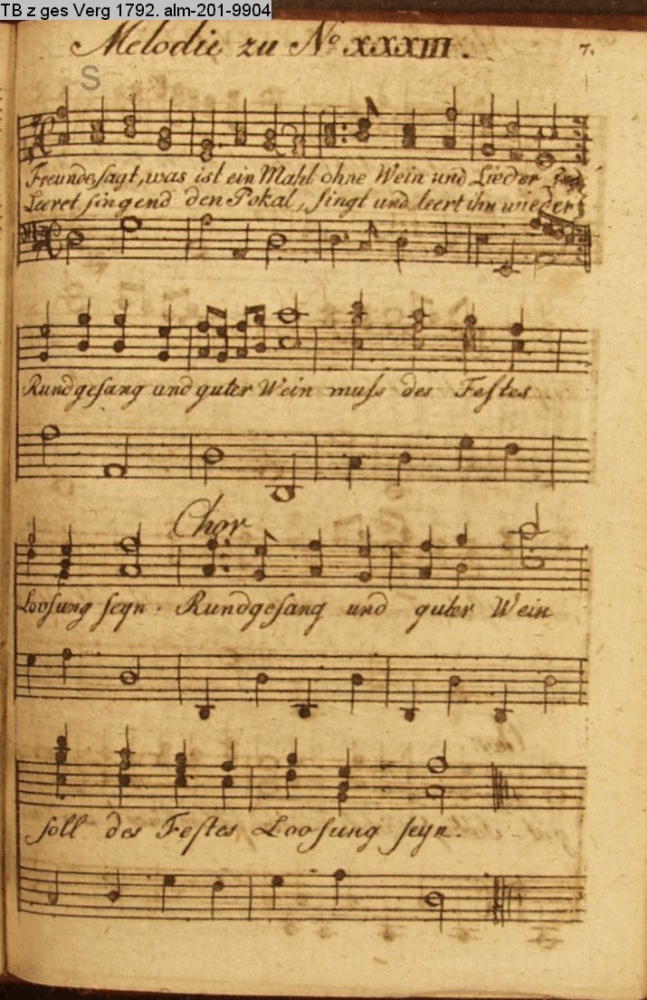 TB z ges Verg 1792. alm-201-9904
Melodie zu No XXXIII.
7.
S
Freunde, sagt, was ist ein Mahl ohne Wein und Lieder
Leeret singend den Pokal, singt und leert ihn wieder
Rundgesang und guter Wein muss des Festes
Chor
Loosung seyn. Rundgesang und guter Wein
soll des Festes Loosung seyn.